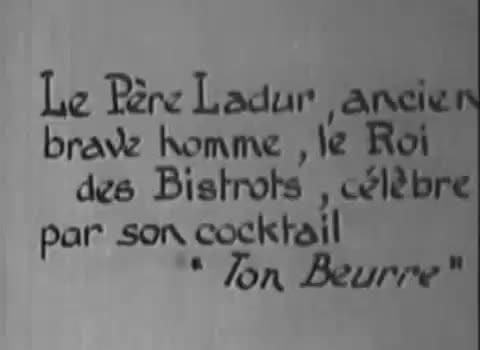 Le Père Ladur, ancien
brave homme, le Roi
des Bistrots, célèbre
par son cocktail
"Ton Beurre"